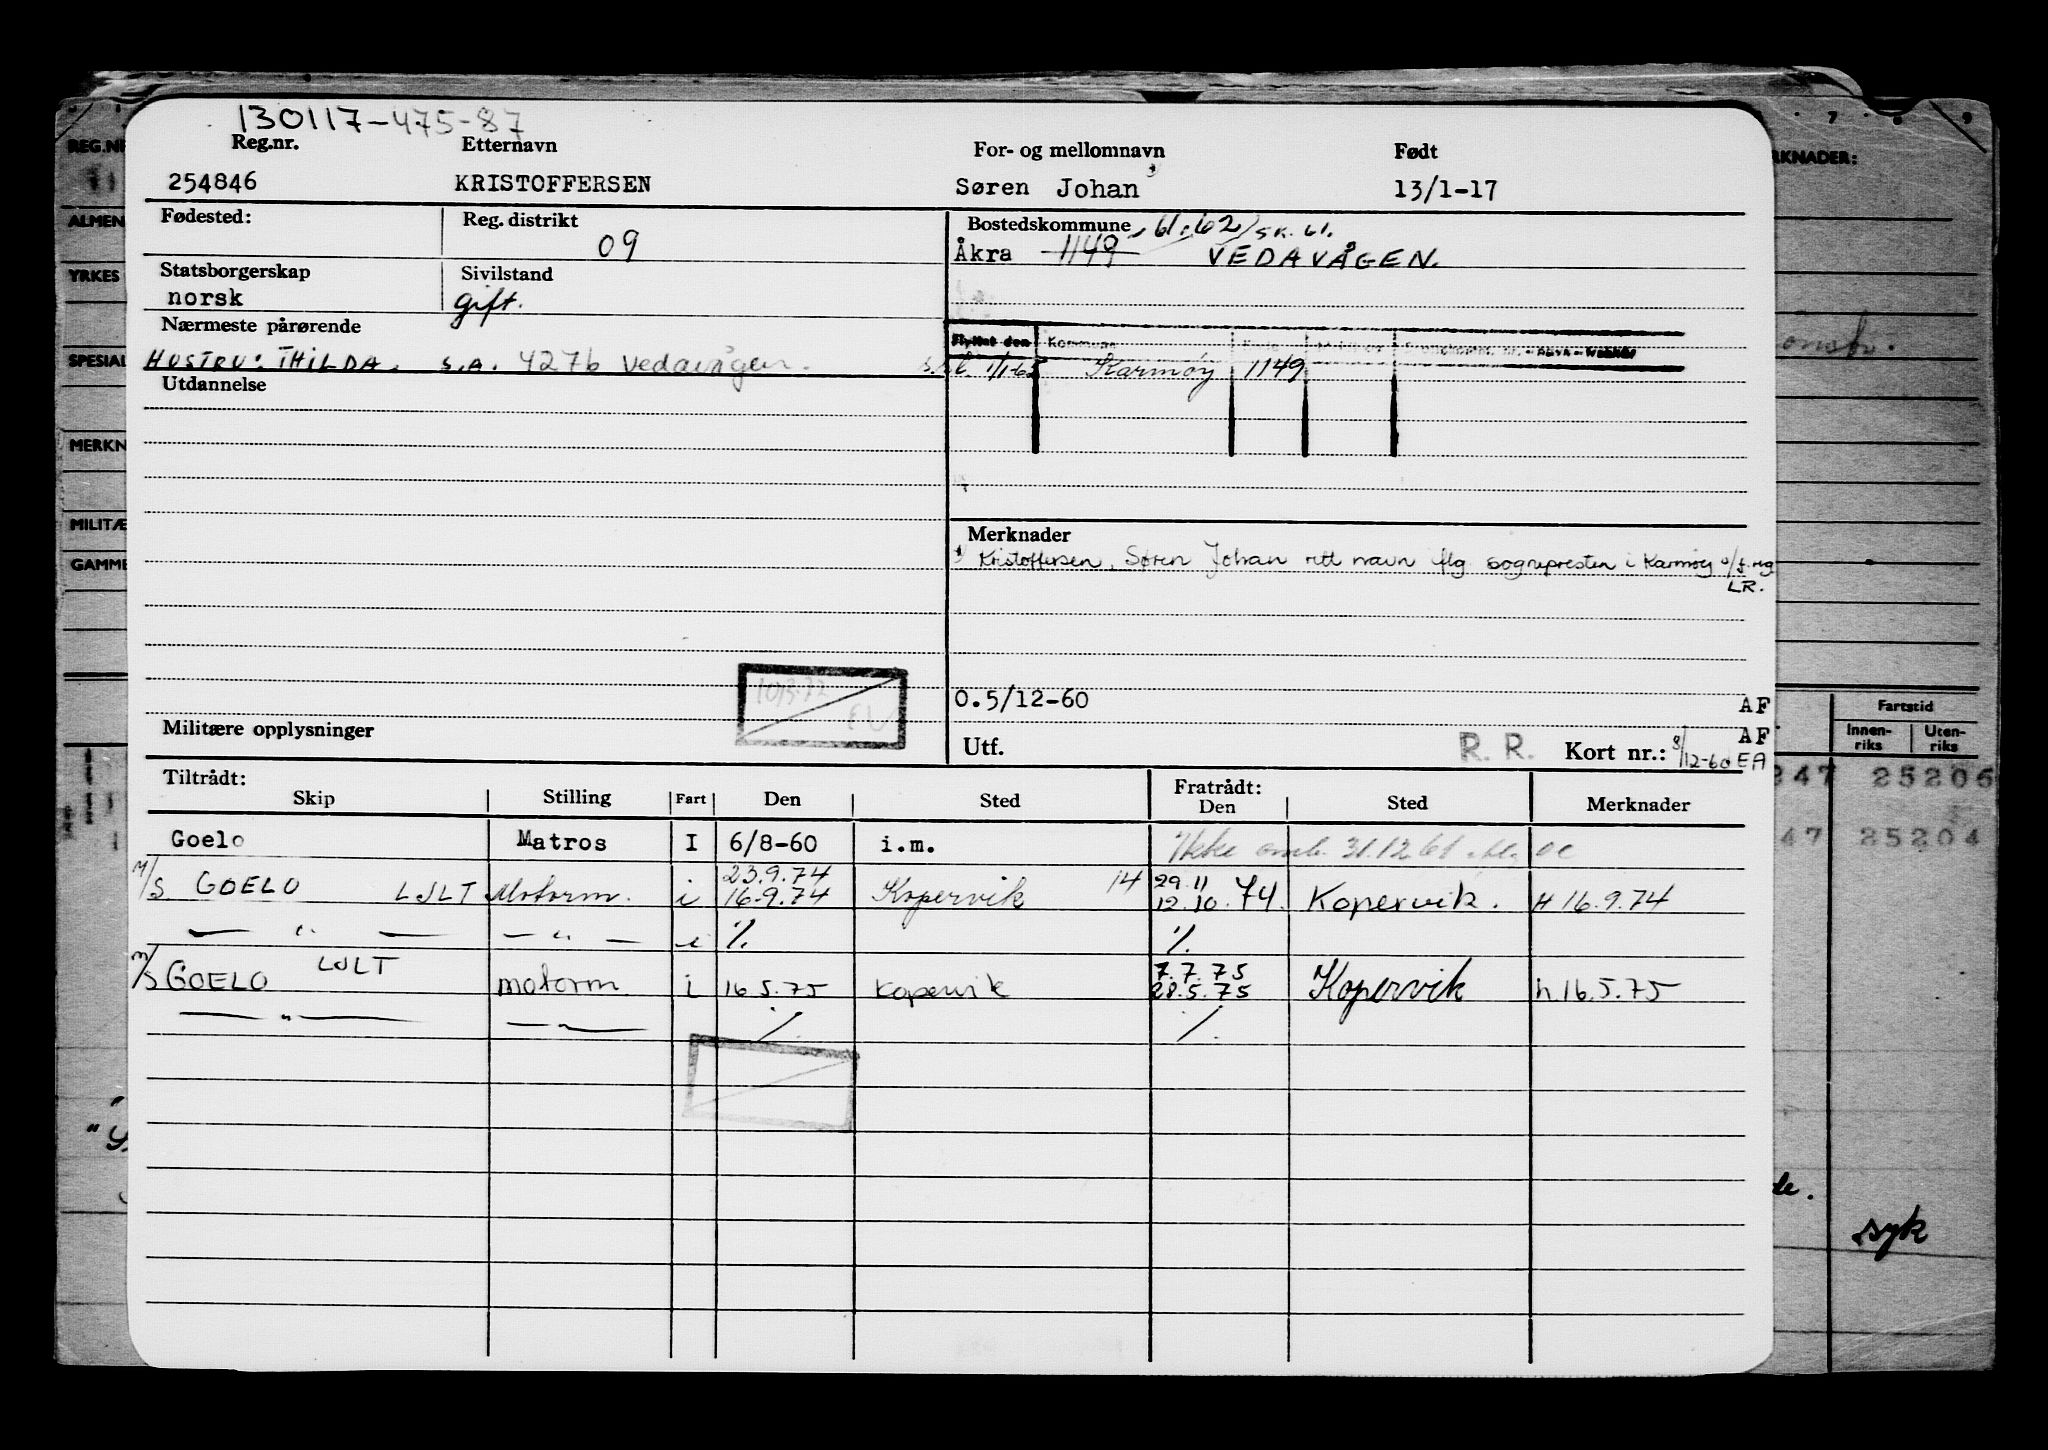 130117-475-87
Reg.nr. Etternavn For- og mellomnavn Født
254846 KRISTOFFERSEN Søren Johan 13/1-17
Fødested: Reg. distrikt Bostedskommune 61.62/ SK. 61.
09 Åkra 1149 VEDAVÅGEN.
Statsborgerskap Sivilstand
norsk gift.
Nærmeste pårørende
Flyttet den Kommune
HUSTRU: THILDA. S.A. 4276 Vedavågen. 1/1-65 Karmøy 1149
Utdannelse
Merknader
Kristoffersen, Søren Johan rett navn flg. sognepresten i Karmøy
LR.
10/3-72
EU
O.5/12-60 AF
Militære opplysninger
Utf. R. R. Kort nr.: 8/12-60 AF EA
Tiltrådt: Fratrådt:
Skip Stilling Fart Den Sted Den Sted Merknader
Goelo Matros I 6/8-60 i.m. Ikke omb. 31.12.61
23.9.74 29.11
M/S. GOELO LJLT Motorm. i 16.9.74 Kopervik 14 12.10.74. Kopervik. H 16.9.74
— " — — " — i % %
LJLT 7.7.75
M/S GOELO motorm i 16.5.75 Kopervik 28.5.75 Kopervik h 16.5.75
— " — — " — % %
REG.NR
ALMEN
YRKES
SPESIAL
MERKN
MILITÆ
GAMME
7 8 9
RKNADER:
Fartstid
Innen-riks Uten-riks
247 25206
47 25204
syk